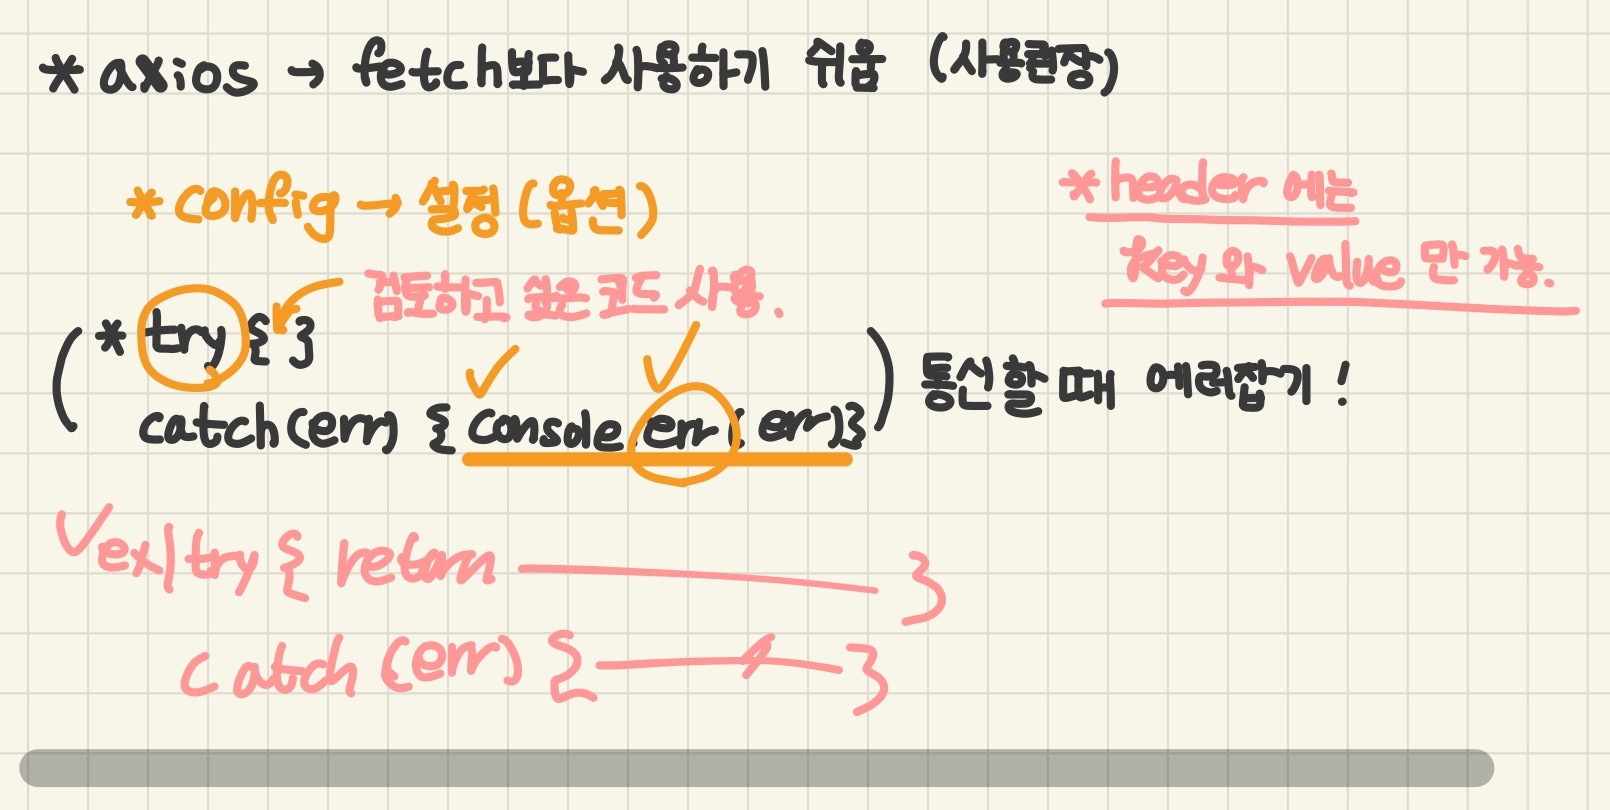 * axios → fetch보다 사용하기 쉬움 (사용권장)
* config → 설정 (옵션)
* header 에는
key 와 value 만 가능.
검토하고 싶은 코드 사용.
( * try { }
catch (err) { console.err(err)} ) 통신할 때 에러잡기!
ex) try { return ——— }
catch (err) { ——— }